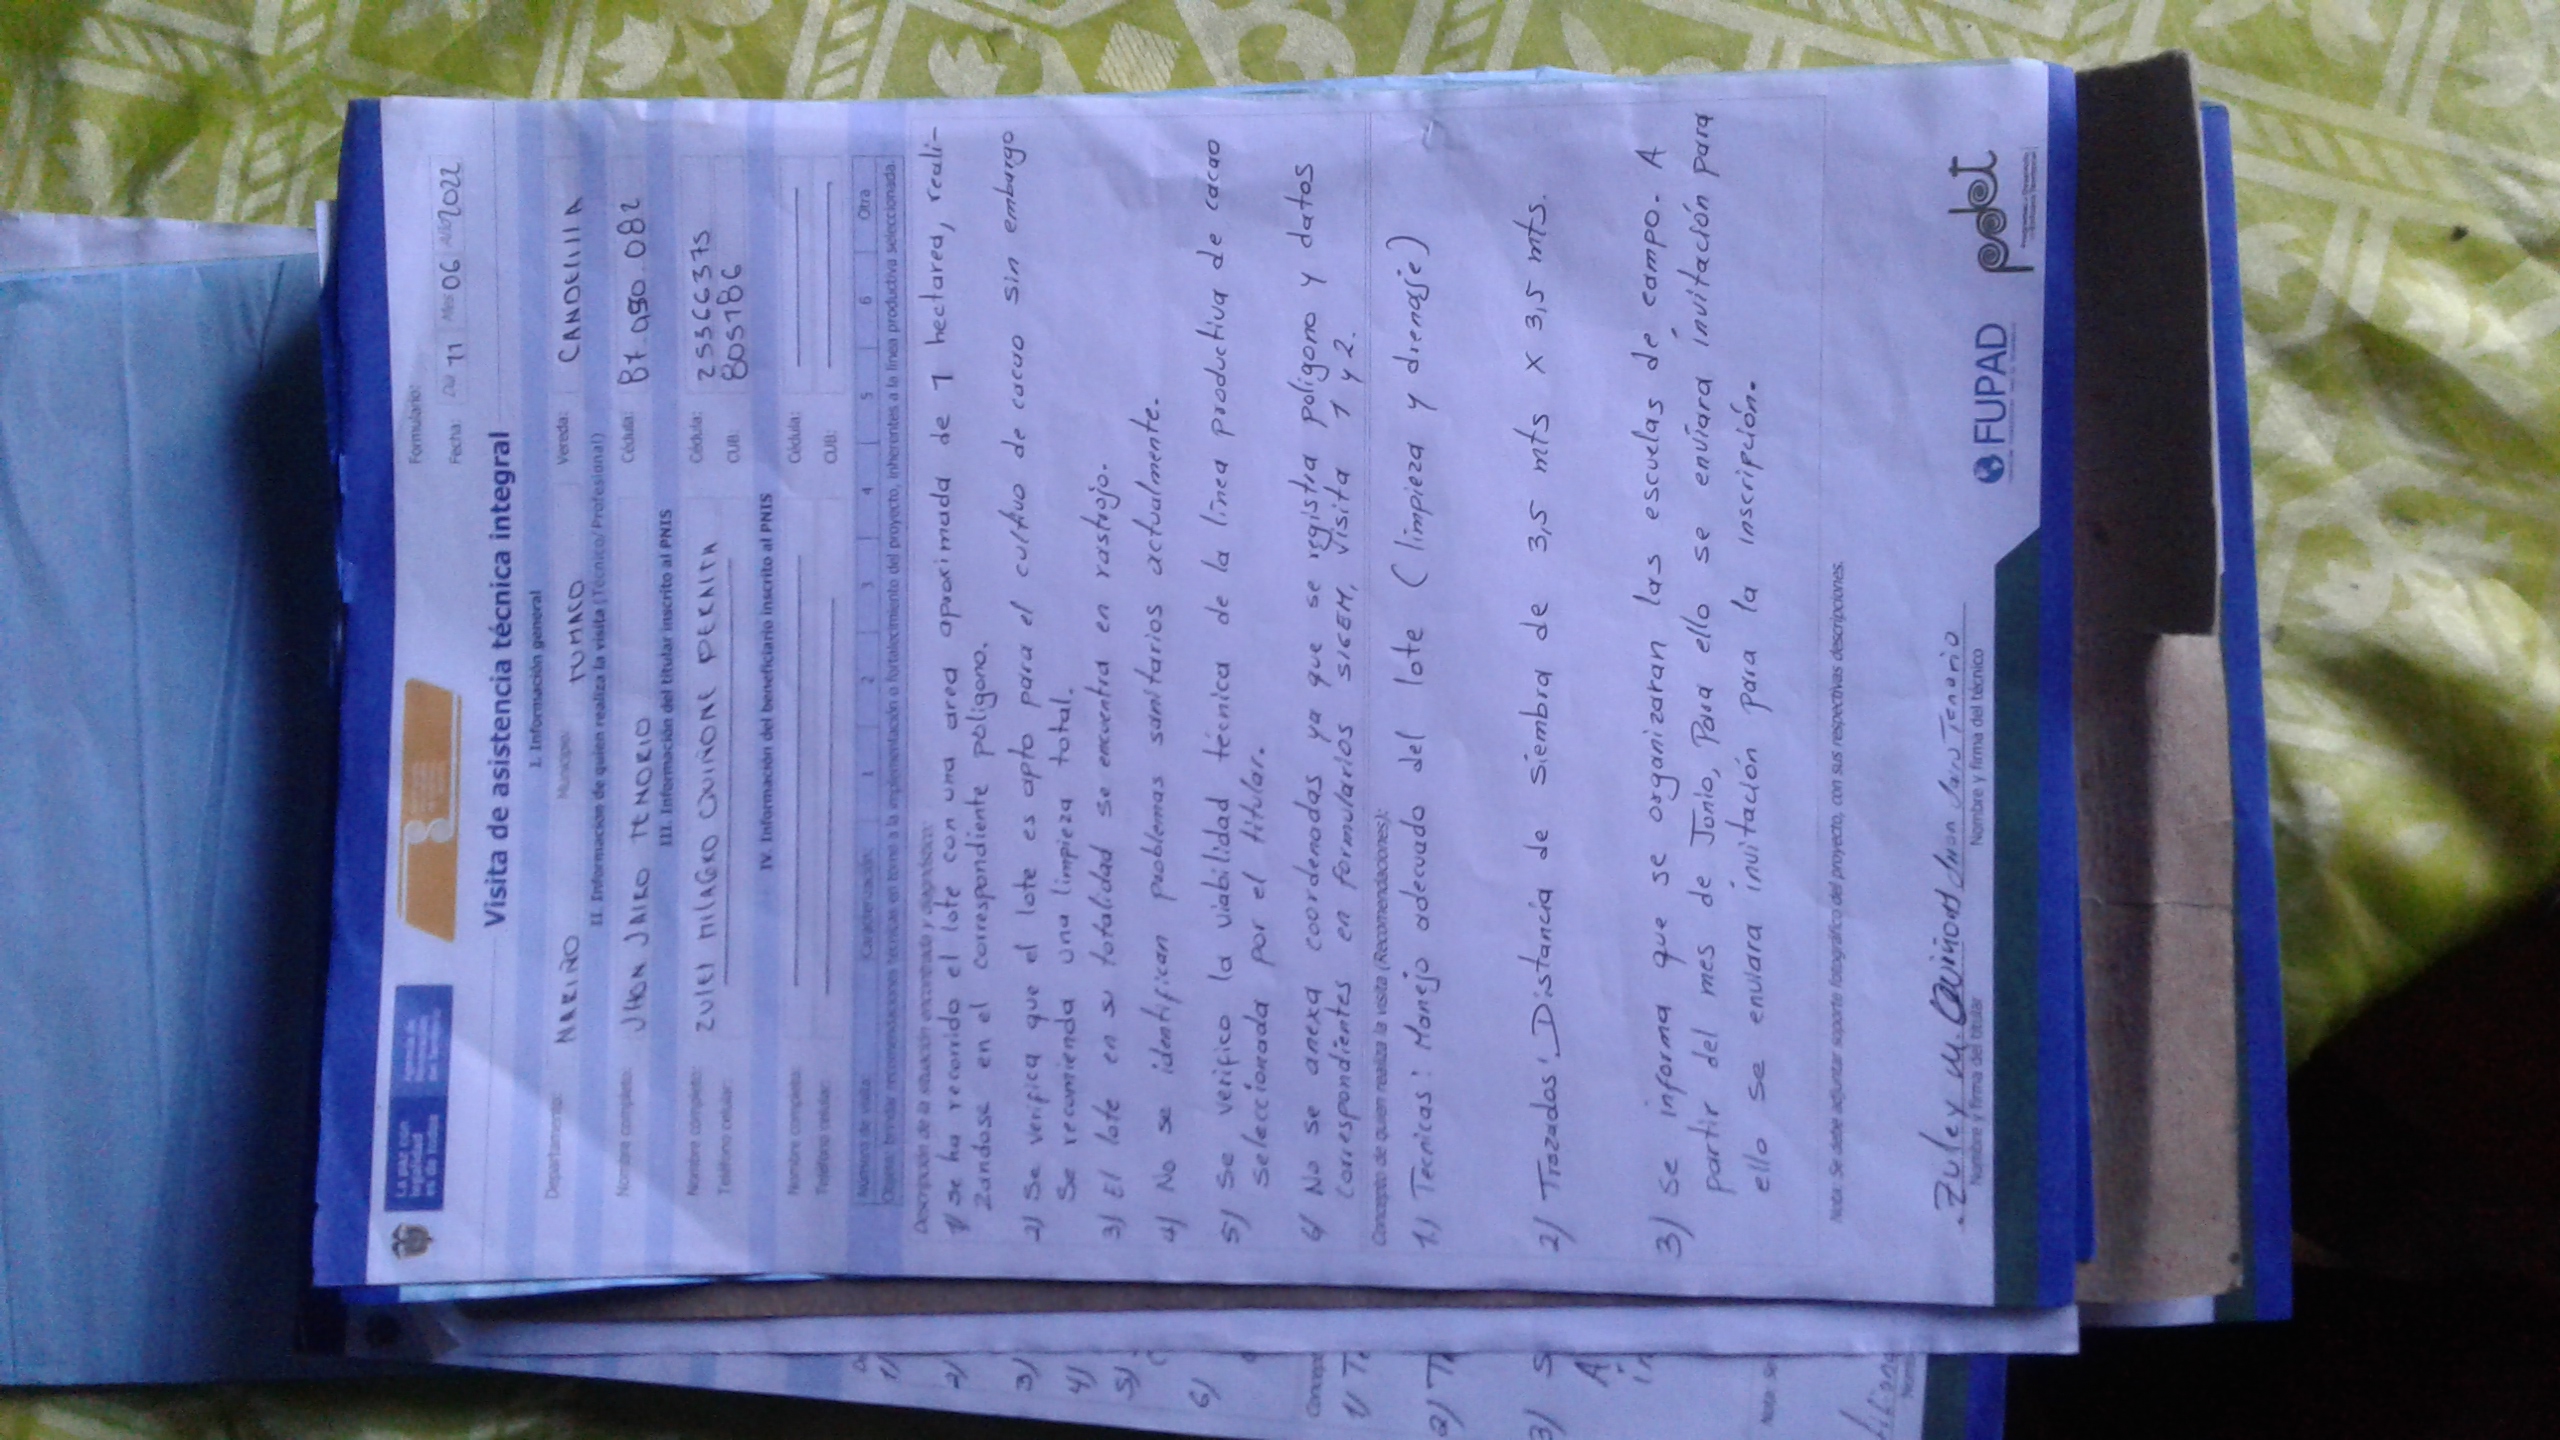 La paz con
legalidad
es de todos
Formulario:
Fecha: Día 11 Mes 06 Año 2022
Visita de asistencia técnica integral
I. Información general
Departamento: NARIÑO Municipio: TUMACO Vereda: CANDELILLA
II. Informacion de quien realiza la visita (Técnico/Profesional)
Nombre completo: JHON JAIRO TENORIO Cédula: 87.090.082
III. Información del titular inscrito al PNIS
Nombre completo: ZULEI MILAGRO QUIÑONE PERALTA Cédula: 25366375
Teléfono celular: CUB: 805186
IV. Información del beneficiario inscrito al PNIS
Nombre completo: Cédula:
Teléfono celular: CUB:
Número de visita: Caracterización 1 2 3 4 5 6 Otra
Objeto: brindar recomendaciones técnicas en torno a la implementación o fortalecimiento del proyecto, inherentes a la línea productiva seleccionada.
Descripción de la situación encontrada y diagnóstico:
1) se ha recorrido el lote con una area aproximada de 1 hectarea, reali-
zandose en el correspondiente polígono.
2) Se verifica que el lote es apto para el cultivo de cacao sin embargo
Se recomienda una limpieza total.
3) El lote en su totalidad se encuentra en rastrojo.
4) No se identifican problemas sanitarios actualmente.
5) Se verifico la viabilidad técnica de la línea productiva de cacao
seleccionada por el titular.
6) No se anexa coordenadas ya que se registra polígono y datos
correspondientes en formularios SIGEM, visita 1 y 2.
Concepto de quien realiza la visita (Recomendaciones):
1) Tecnicas: Manejo adecuado del lote (limpieza y drenaje)
2) Trazados: Distancia de siembra de 3,5 mts x 3,5 mts.
3) Se informa que se organizaran las escuelas de campo. A
partir del mes de Junio, Para ello se enviara invitación para
ello se enviara invitación para la inscripción.
Nota: Se debe adjuntar soporte fotográfico del proyecto, con sus respectivas descripciones.
Zuley M. Quiñones Jhon Jairo Tenorio
Nombre y firma del titular Nombre y firma del técnico
FUPAD
pdet